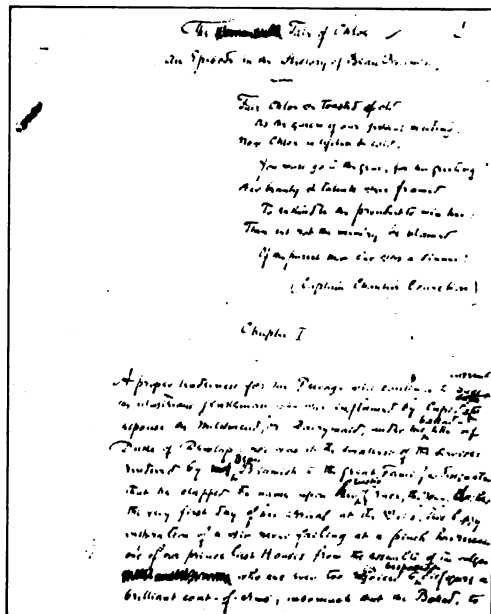 The Tale of Chloe
An Episode in the History of Beau Beamish.
Fair Chloe we toasted of old
As the queen of our festival meeting;
Now Chloe is lifeless & cold;
You must go to the grave for her greeting.
Her beauty & talents were framed
To enkindle the proudest to win her;
Then let not the mem'ry be blamed
Of the purest that e'er was a sinner!
(Captain Chanter's Collection)
Chapter I
A proper tenderness for the Peerage will continue to
current
illustrious gentleman who was inflamed by Cupid's
espouse the milkmaid, or Dairymaid, under his ballad title of
Duke of Dewlap: nor was it the smallest of the services
rendered by Beau Beamish to the great Family
that he clapped the name upon her rustic Grace, the
the very first day of her arrival at the Wells. This happy
inspiration of a wit never failing at a pinch has rescued
one of our princeliest Houses from the assaults of the vulgar
who are ever too rejoiced to bespatter disfigure a
brilliant coat-of-arms; insomuch that the Ballad, to